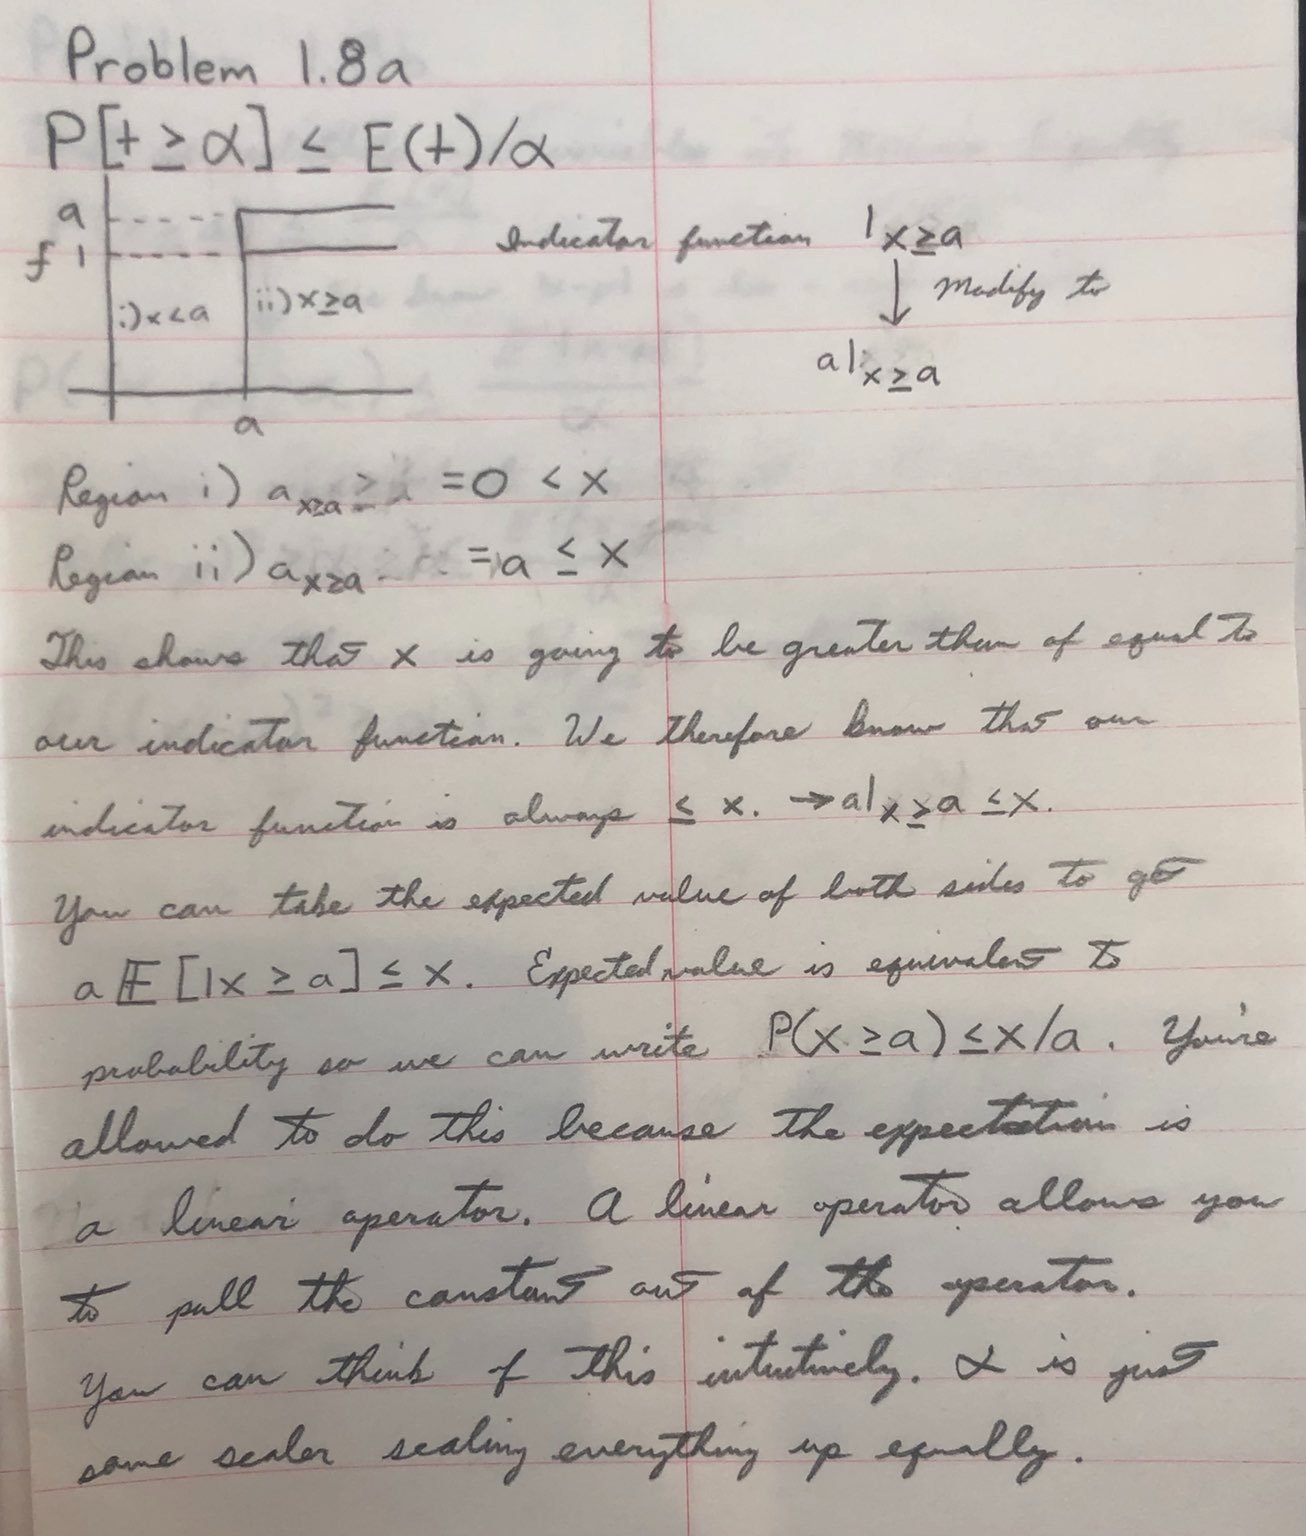 Problem 1.8a
P[t ≥ α] ≤ E(t)/α
a
f 1
i) x < a ii) x ≥ a
a
Indicator function 1x≥a
Modify to
a1x≥a
Region i) a x≥a = 0 < x
Region ii) a x≥a = a ≤ x
This shows that x is going to be greater than of equal to
our indicator function. We therefore know that our
indicator function is always ≤ x. → a1x≥a ≤ x.
You can take the expected value of both sides to get
a E[1x ≥ a] ≤ x. Expected value is equivalent to
probability so we can write P(x ≥ a) ≤ x/a. You're
allowed to do this because the expectation is
a linear operator. A linear operator allows you
to pull the constant out of the operator.
You can think of this intuitively. α is just
some scaler scaling everything up equally.